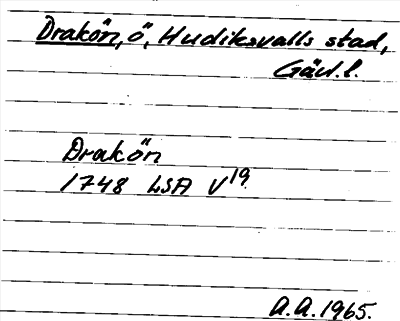 Drakön, ö, Hudiksvalls stad,
Gävl.l.
Drakön
1748 LSA V19
A.A. 1965.